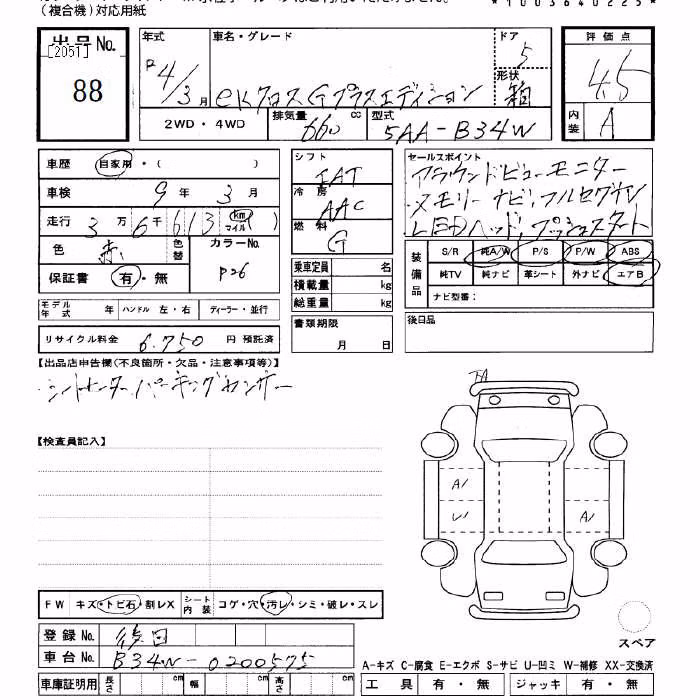 (複合機)対応用紙
*1003640225*
出品No.
[2051]
88
年式
R4/3月
車名・グレード
eKクロス Gプラスエディション
ドア
5
形状
箱
2WD・4WD
排気量
660 cc
型式
5AA-B34W
評価点
4.5
内装
A
車歴 自家用・( )
車検 9年 3月
走行 3万 6千 613 (km マイル)
色 赤 色替
カラーNo.
P26
保証書 有・無
モデル年式 年 ハンドル 左・右 ディーラー・並行
リサイクル料金 6,750 円 預託済
シフト
IAT
冷房
AAC
燃料
G
乗車定員 名
積載量 kg
総重量 kg
書類期限
月 日
セールスポイント
アラウンドビューモニター
メモリーナビ、フルセグTV
LEDヘッド、プッシュスタート
装備品
S/R 純A/W P/S P/W ABS
純TV 純ナビ 革シート 外ナビ エアB
ナビ型番:
後日品
【出品店申告欄(不良箇所・欠品・注意事項等)】
シートヒーター パーキングセンサー
【検査員記入】
A1
A1
FW キズ・トビ石・割レX シート内装 コゲ・穴・汚レ・シミ・破レ・スレ
登録No. 後日
車台No. B34W-0200575
車庫証明用 長さ cm 幅 cm 高さ cm
スペア
A-キズ C-腐食 E-エクボ S-サビ U-凹ミ W-補修 XX-交換済
工具 有・無 ジャッキ 有・無